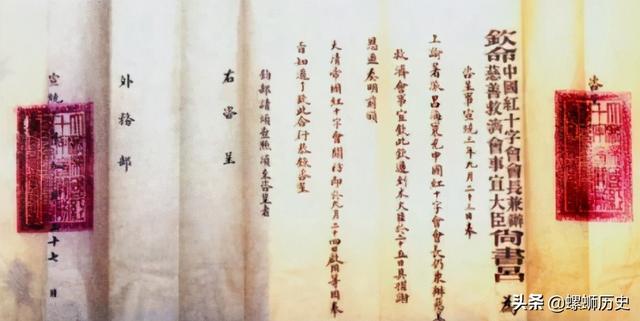 咨呈
欽命中國紅十字會會長兼辦慈善救濟會事宜大臣尚書呂 為
咨呈事宣統三年九月二十三日奉
上諭著派呂海寰充中國紅十字會會長仍兼辦慈善
救濟會事宜欽此欽遵到本大臣於二十五日具摺謝
恩並奏明前頒
大清帝國紅十字會關防即於九月二十四日啟用等因奉
旨知道了欽此合行恭錄咨呈
鈞部請煩查照須至咨呈者
右咨呈
外務部
宣統 十七 日
头条 @螺蛳历史